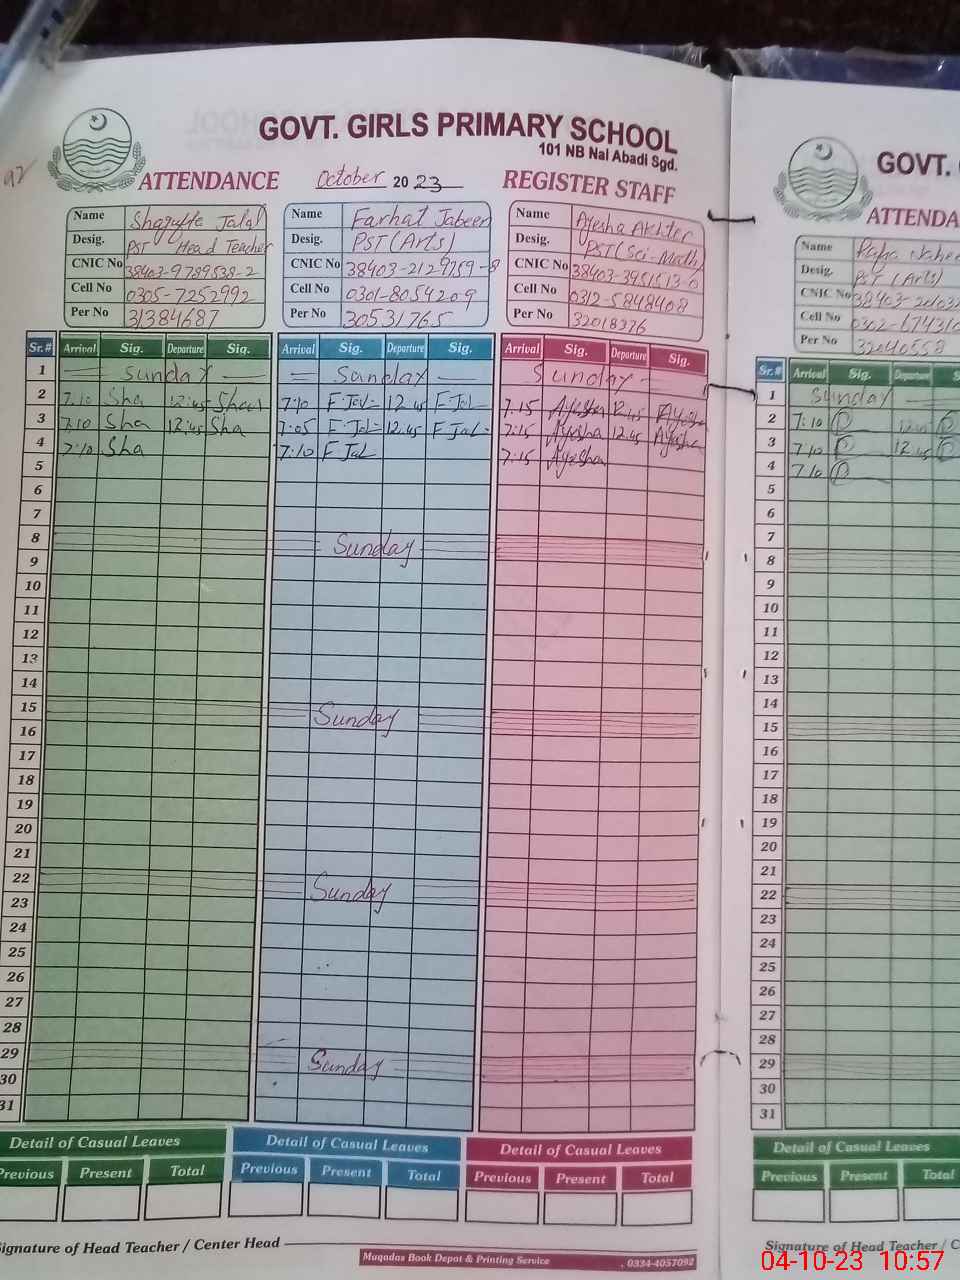 GOVT. GIRLS PRIMARY SCHOOL
101 NB Nai Abadi Sgd.
ATTENDANCE October 2023 REGISTER STAFF
Name Shagufta Jalal
Desig. PST Head Teacher
CNIC No 38403-9789538-2
Cell No 0305-7252992
Per No 31384687
Name Farhat Jabeen
Desig. PST (Arts)
CNIC No 38403-2129759-8
Cell No 0301-8054209
Per No 30531765
Name Ayesha Akhter
Desig. PST (Sci-Math)
CNIC No 38403-3951513-0
Cell No 0312-5848408
Per No 32018376
Sr.# Arrival Sig. Departure Sig. Arrival Sig. Departure Sig. Arrival Sig. Departure Sig.
1 Sunday Sunday Sunday
2 7:10 Sha 12:45 7:10 F.Jal 12:45 F.Jal 7:15 Ayesha 12:45 Ayesha
3 7:10 Sha 12:45 Sha 7:05 F.Jal 12:45 F.Jal 7:15 Ayesha 12:45 Ayesha
4 7:10 Sha 7:10 F Jal 7:15 Ayesha
5
6
7
8 Sunday
9
10
11
12
13
14
15 Sunday
16
17
18
19
20
21
22 Sunday
23
24
25
26
27
28
29 Sunday
30
31
Detail of Casual Leaves Detail of Casual Leaves Detail of Casual Leaves
Previous Present Total Previous Present Total Previous Present Total
Signature of Head Teacher / Center Head
Muqadas Book Depot & Printing Service , 0334-4057092
GOVT.
ATTENDA
Name
Desig. PST (Arts)
CNIC No
Cell No
Per No 32040558
Sr.# Arrival Sig. Departure
1 Sunday
2 7:10 12:45
3 7:10 12:45
4 7:10
5
6
7
8
9
10
11
12
13
14
15
16
17
18
19
20
21
22
23
24
25
26
27
28
29
30
31
Detail of Casual Leaves
Previous Present Total
Signature of Head Teacher / C
04-10-23 10:57